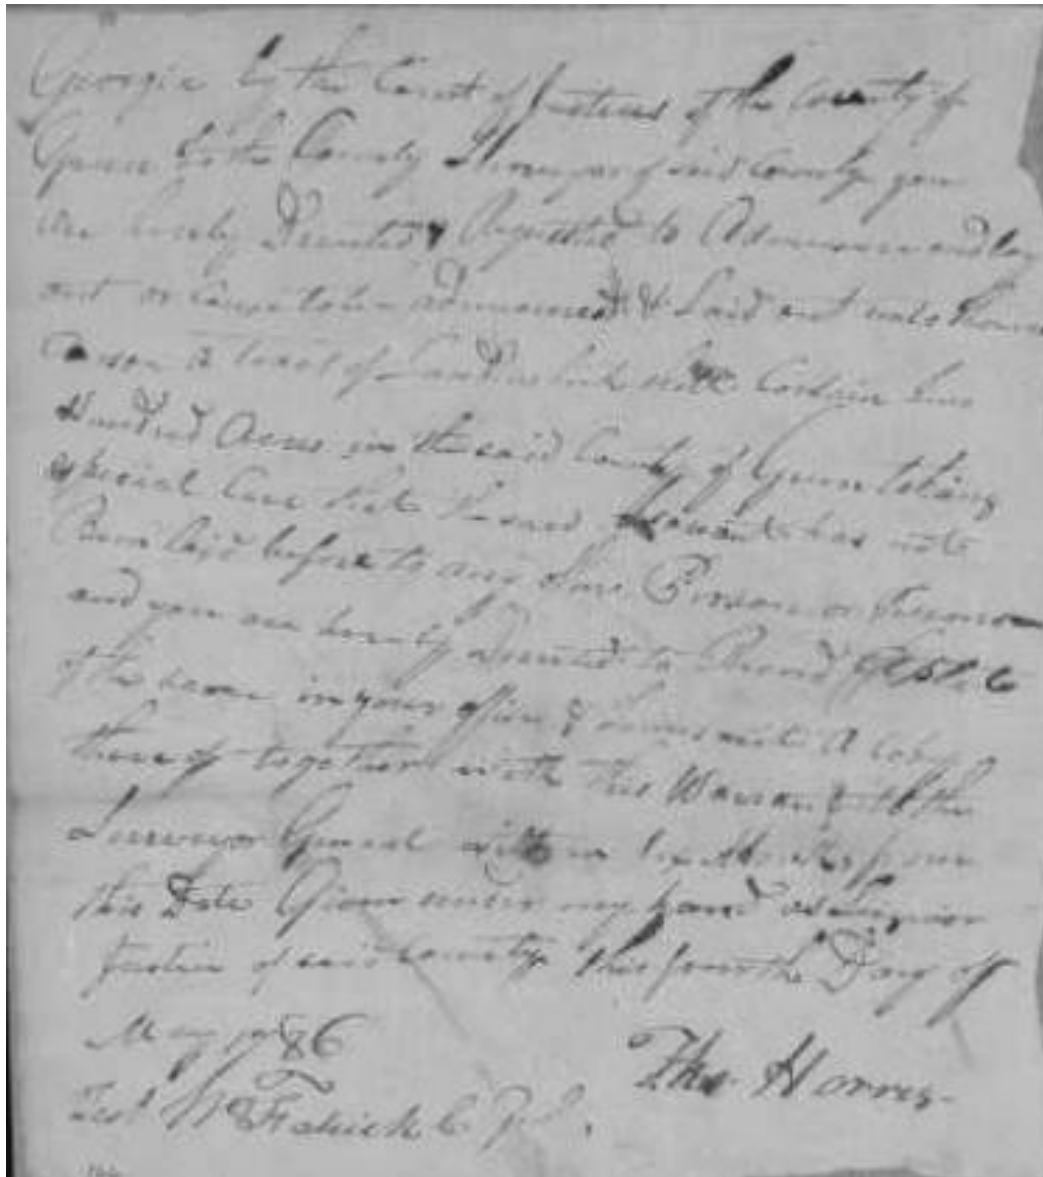 Georgia by the Court of Justices of the County of
Green To the County Surveyor of said County you
are hereby Directed & Requested to Admeasure and lay
out or Cause to be admeasured & Laid out unto Thomas
Carson A tract of Land which Will Contain two
Hundred Acres in the said County of Green taking
especial Care that the same has not
Been laid before to any other Person or Persons
and you are hereby Directed to Record
of the same in your office & transmit A Copy
thereof together with this Warrant to the
Surveyor General within from
this Date Given under my hand as
Justice of said County this fourth Day of
May 1786
Thos Harris
Test Wm Fitzpatrick